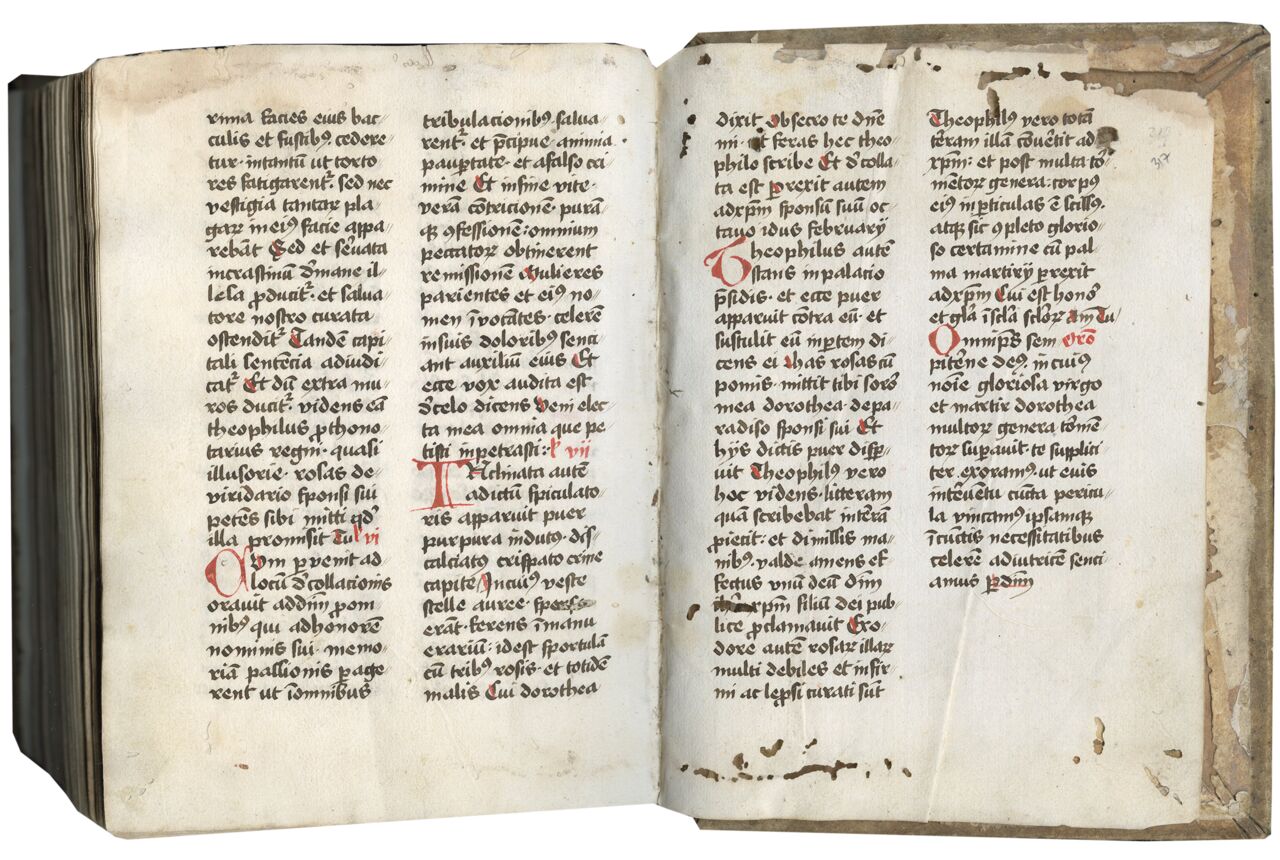 rinia facies eius bac〃
culis et fustibꝰ cedere
tur· intantū ut torto〃
res fatigarent᷑. sed nec
vestigia tantaꝝ pla〃
gaꝝ in eiꝰ facie appa〃
rebāt Sed et s̉uata
incrastinū d̉mane il〃
lesa ꝓducit᷑· et salua〃
tore nostro curata
ostendit᷑ Tandē capi
tali sentencia adiudi
cat᷑ Et dū extra mu〃
ros ducit᷑· videns eā
theophilus ꝓthono〃
tarius regni· quasi
illusorie· rosas de〃
viridario sponsi sui
petēs sibi mitti qd̓
illa promisit Tu l̓ vi
Cvm ꝑvenit ad
locū d̓collacionis
oravit addn̄m ꝓ om〃
nibꝰ qui adhonorē
nominis sui· memo〃
riā passionis ꝑage〃
rent ut īomnibus
tribulacionibꝰ salua〃
rent᷑· et p̄cipue aninia
paup̱tate· et afalso cri
mine Et infine vite·
verā cōtricionē· purā〃
qꝫ ꝯfessionē: omnium
peccatoꝝ obtinerent
remissionē Mulieres
parientes et eiꝰ no〃
men īvocātes· celerē
insuis doloribꝰ senci〃
ant auxiliū eius Et
ecce vox audita est
d̓celo dicens veni elec〃
ta mea omnia que pe
tisti inpetrasti: l̓ vii
INclinata autē
adictū spiculato〃
ris apparuit puer
purpura indutꝰ· dis〃
calciatꝰ crispato crine
capite· Incuiꝰ veste
stelle auree· sperse
erāt· ferens īmanu
erariū: idest sportulā
cū tribꝰ rosis· et totidē
malis Cui dorothea
dixit Obsecro te dn̄e
mi· ut feras hec theo〃
philo scribe Et d̓colla〃
ta est ꝑrexit autem
adxp̄m sponsū suū oc〃
tavo idus february
Theophilus autē
stans inpalacio
p̄sidis· et ecce puer
apparuit cōtra eū· et
sustulit eū inꝑtem di〃
cens ei has rosas cū
pomis· mittit tibi soror
mea dorothea· depa〃
radiso sponsi sui Et
hijs dictis puer disp̱〃
uit Theophilꝰ vero
hoc videns· litteram
quā scribebat interā
ꝓiecit: et dimissis ma〃
nibꝰ· valde amens ef〃
fectus unū deū dn̄m
xp̄m filiū dei pub〃
lice ꝓclamauit Exo〃
dore autē rosaꝝ illaꝝ
multi debiles et infir〃
mi ac lep̱si curati sūt
Theophilꝰ vero totā
terram illā cōuertit ad
xp̄m: et post multa to〃
mentoꝝ genera: corpꝰ
eiꝰ inꝑticulas ē scissꝰ.
atqꝫ sic ꝯpleto glorio〃
so certamine cū pal〃
ma martirij ꝑrexit
adxp̄m Cui est honor
et gl̄a īsc̄la sc̄loꝝ Am Tu
Omnip̄s sem Oro
pit̓ne deꝰ. incuiꝰ
noīe gloriosa virgo
et martir dorothea
multoꝝ genera tōmē〃
toꝝ suꝑauit· te supplici
ter exoramꝰ. ut euis
int̓uentu cūcta pericu〃
la vincamꝰ ipsamqꝫ
īcūctis necessitatibus
celerē adiutricē senci〃
amus ꝑ dn̄m